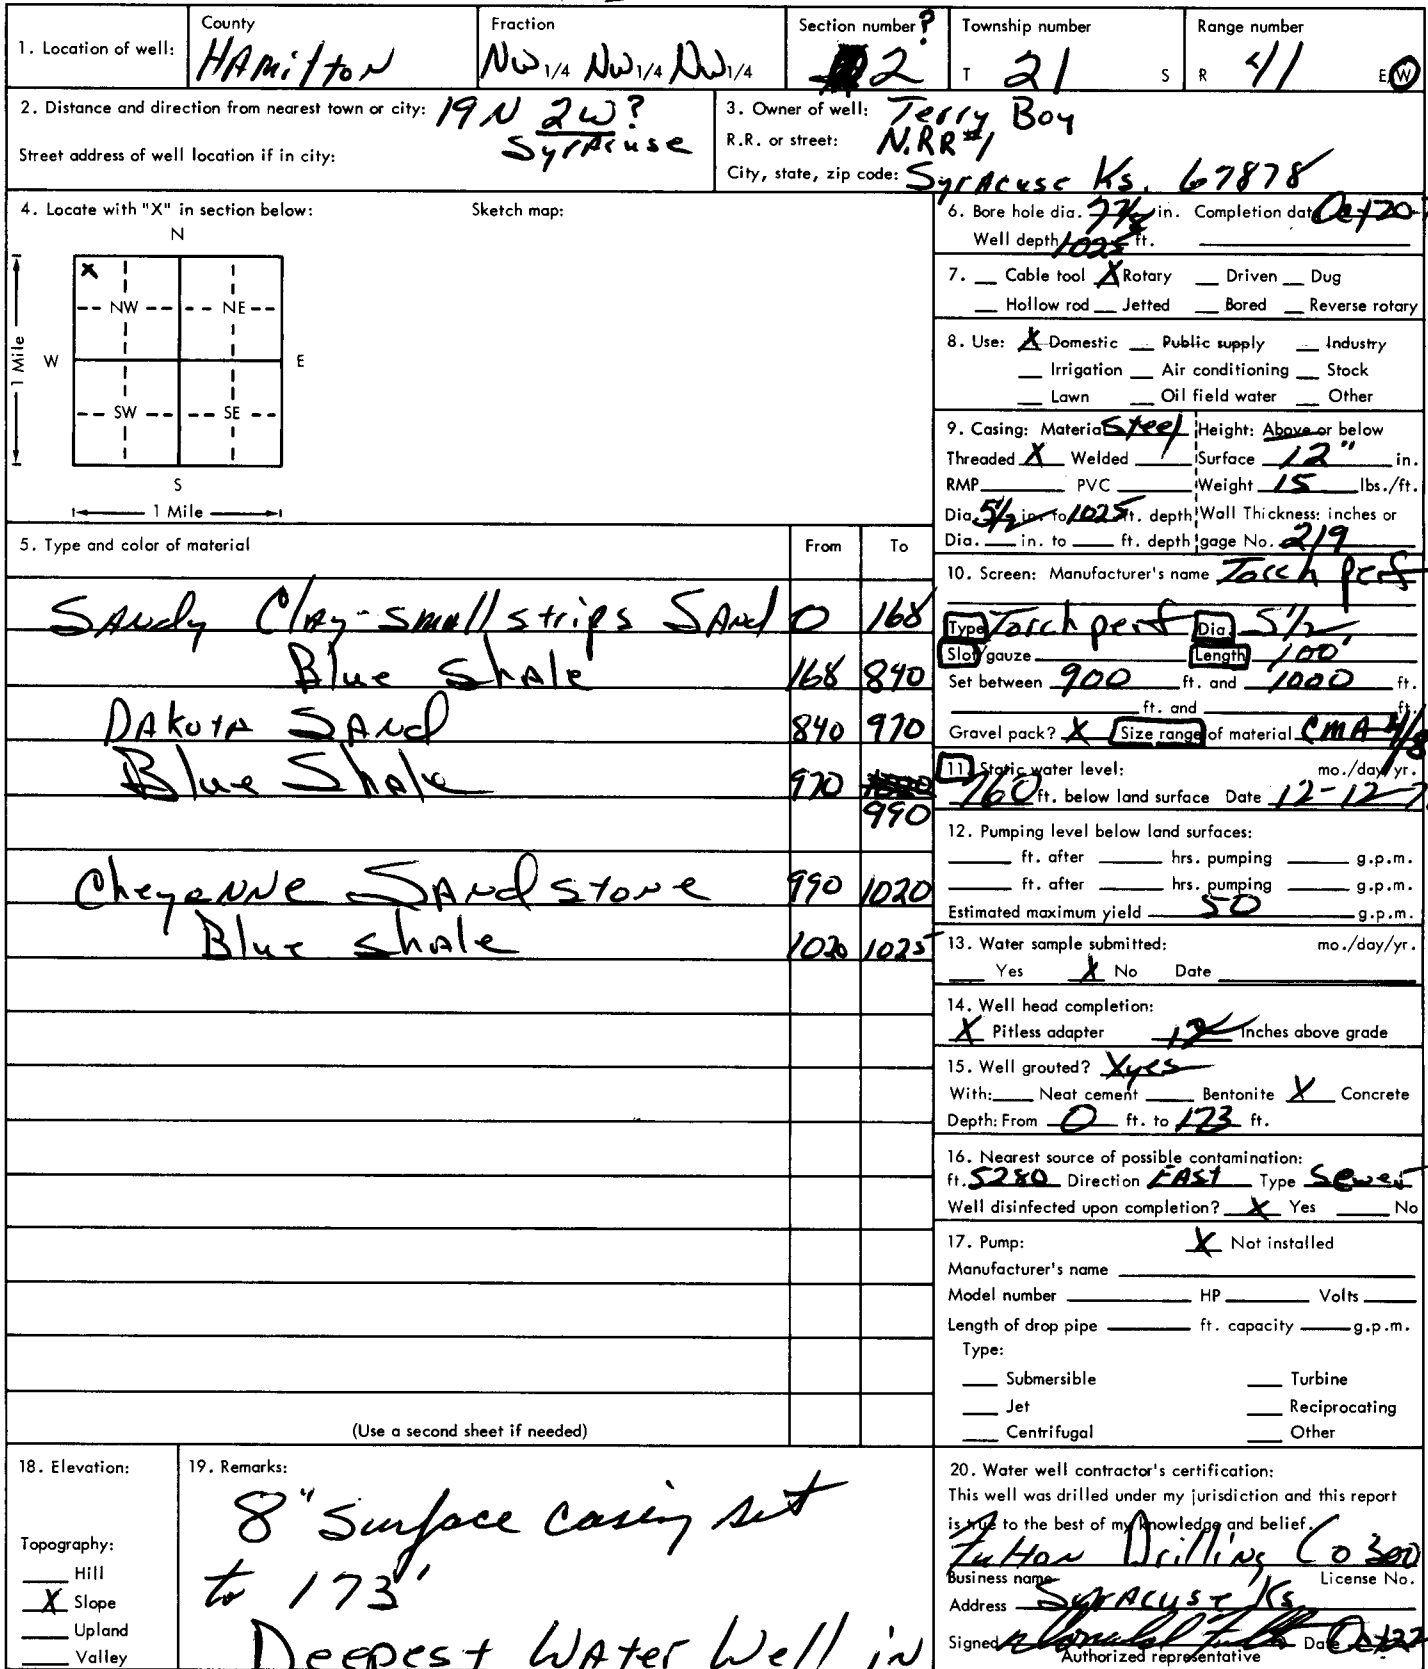 1. Location of well:
County
HAmilton
Fraction
NW 1/4 NW 1/4 NW 1/4
Section number ?
2
Township number
T 21 S
Range number
R 41 E/W
2. Distance and direction from nearest town or city: 19 N 2W?
Syracuse
Street address of well location if in city:
3. Owner of well: Terry Boy
R.R. or street: N.RR #1
City, state, zip code: Syracuse Ks. 67878
4. Locate with "X" in section below:
Sketch map:
N
X
NW NE
W E
1 Mile
SW SE
S
1 Mile
5. Type and color of material From To
Sandy Clay-small strips Sand 0 168
Blue Shale 168 840
Dakota Sand 840 970
Blue Shale 970
990
Cheyenne Sand stone 990 1020
Blue shale 1020 1025
(Use a second sheet if needed)
6. Bore hole dia. 7 7/8 in. Completion dat Oct 20-
Well depth 1025 ft.
7. Cable tool X Rotary Driven Dug
Hollow rod Jetted Bored Reverse rotary
8. Use: X Domestic Public supply Industry
Irrigation Air conditioning Stock
Lawn Oil field water Other
9. Casing: Material Steel Height: Above or below
Threaded X Welded Surface 12" in.
RMP PVC Weight 15 lbs./ft.
Dia. 5 1/2 in. to 1025 ft. depth Wall Thickness: inches or
Dia. in. to ft. depth gage No. 219
10. Screen: Manufacturer's name Torch perf
Type Torch perf Dia. 5 1/2
Slot/gauze Length 100'
Set between 900 ft. and 1000 ft.
ft. and ft.
Gravel pack? X Size range of material CMA 4/8
11. Static water level: mo./day/yr.
760 ft. below land surface Date 12-12-7
12. Pumping level below land surfaces:
ft. after hrs. pumping g.p.m.
ft. after hrs. pumping g.p.m.
Estimated maximum yield 50 g.p.m.
13. Water sample submitted: mo./day/yr.
Yes X No Date
14. Well head completion:
X Pitless adapter 12 Inches above grade
15. Well grouted? X yes
With: Neat cement Bentonite X Concrete
Depth: From 0 ft. to 173 ft.
16. Nearest source of possible contamination:
ft. 5280 Direction EAST Type Sewer
Well disinfected upon completion? X Yes No
17. Pump: X Not installed
Manufacturer's name
Model number HP Volts
Length of drop pipe ft. capacity g.p.m.
Type:
Submersible Turbine
Jet Reciprocating
Centrifugal Other
18. Elevation:
Topography:
Hill
X Slope
Upland
Valley
19. Remarks:
8" Surface casing set
to 173'
Deepest Water Well in
20. Water well contractor's certification:
This well was drilled under my jurisdiction and this report
is true to the best of my knowledge and belief.
Fulton Drilling Co 300
Business name License No.
Address Syracuse Ks
Signed Donald Fulton Date Oct 22
Authorized representative